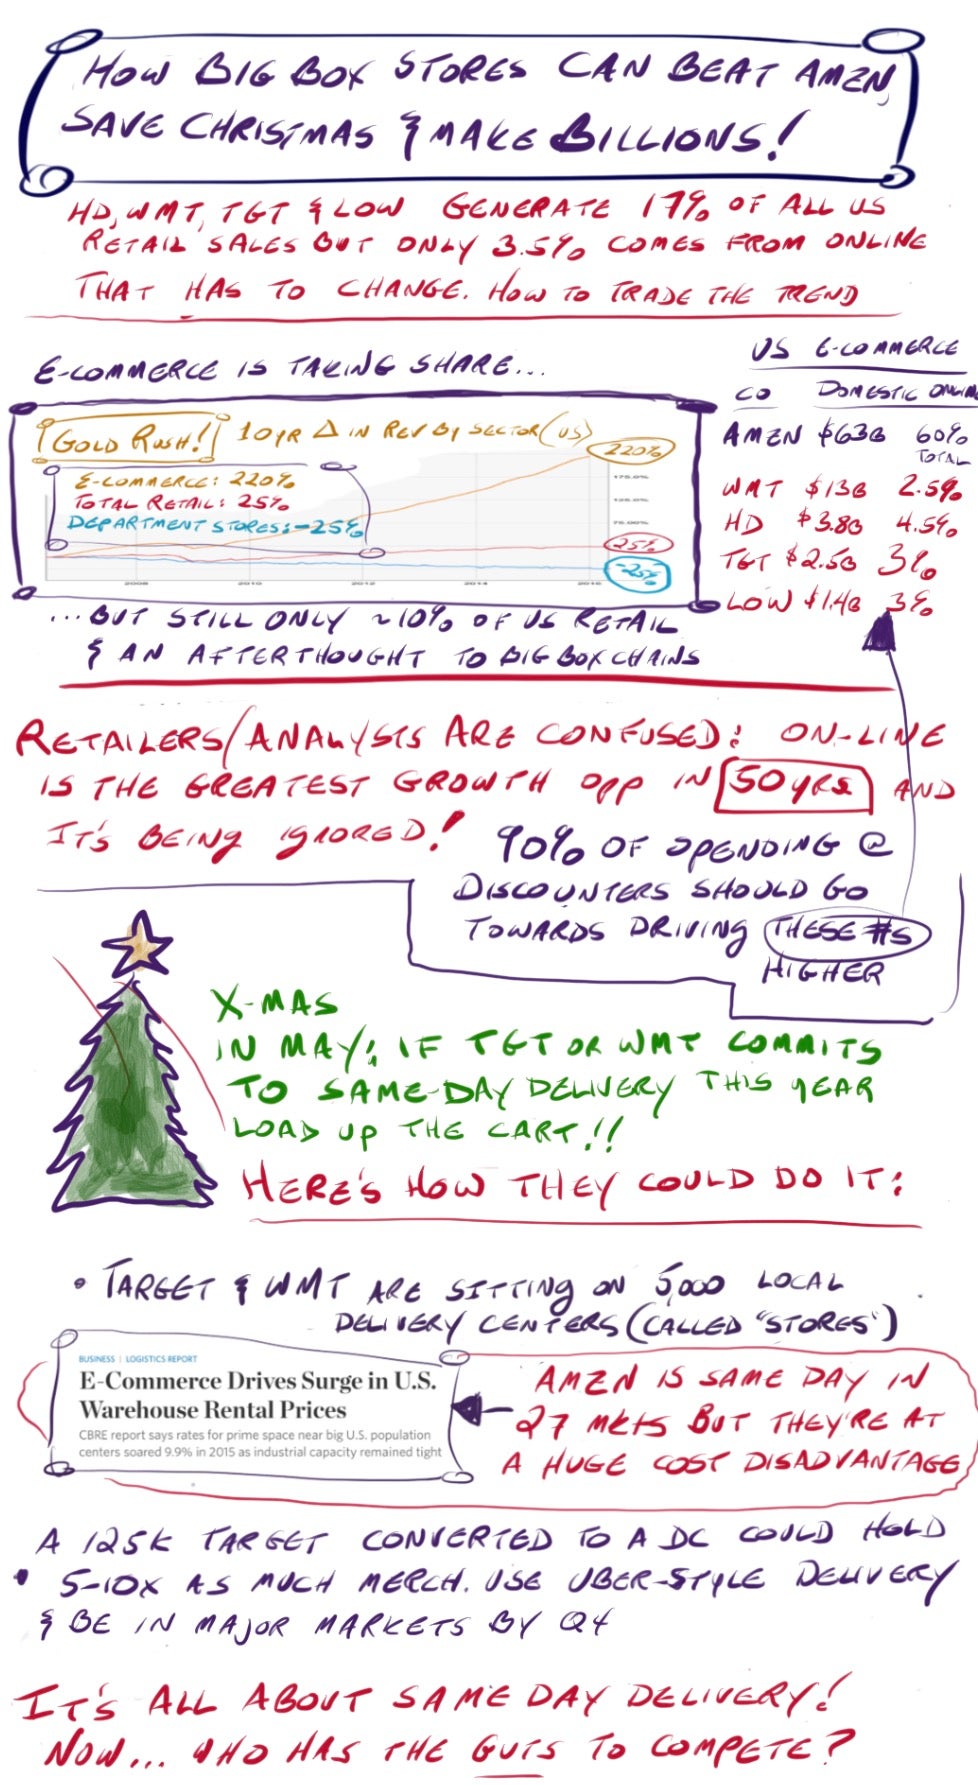 HOW BIG BOX STORES CAN BEAT AMZN,
SAVE CHRISTMAS & MAKE BILLIONS!
HD, WMT, TGT & LOW GENERATE 17% OF ALL US
RETAIL SALES BUT ONLY 3.5% COMES FROM ONLINE
THAT HAS TO CHANGE. HOW TO TRADE THE TREND
E-COMMERCE IS TAKING SHARE...
GOLD RUSH! 10 YR Δ IN REV BY SECTOR (US)
E-COMMERCE: 220%
TOTAL RETAIL: 25%
DEPARTMENT STORES: -25%
220%
175.0%
125.0%
75.00%
25%
-25%
2008 2010 2012 2014 2016
US E-COMMERCE
CO DOMESTIC ONLINE
AMZN $63B 60% TOTAL
WMT $13B 2.5%
HD $3.8B 4.5%
TGT $2.5B 3%
LOW $1.4B 3%
...BUT STILL ONLY ~10% OF US RETAIL
& AN AFTERTHOUGHT TO BIG BOX CHAINS
RETAILERS/ANALYSTS ARE CONFUSED: ON-LINE
IS THE GREATEST GROWTH OPP IN 50 YRS AND
IT'S BEING IGNORED!
90% OF SPENDING @
DISCOUNTERS SHOULD GO
TOWARDS DRIVING THESE #S
HIGHER
X-MAS
IN MAY: IF TGT OR WMT COMMITS
TO SAME-DAY DELIVERY THIS YEAR
LOAD UP THE CART!!
HERE'S HOW THEY COULD DO IT:
• TARGET & WMT ARE SITTING ON 5,000 LOCAL
DELIVERY CENTERS (CALLED "STORES")
BUSINESS | LOGISTICS REPORT
E-Commerce Drives Surge in U.S.
Warehouse Rental Prices
CBRE report says rates for prime space near big U.S. population
centers soared 9.9% in 2015 as industrial capacity remained tight
AMZN IS SAME DAY IN
27 MKTS BUT THEY'RE AT
A HUGE COST DISADVANTAGE
A 125K TARGET CONVERTED TO A DC COULD HOLD
• 5-10X AS MUCH MERCH. USE UBER-STYLE DELIVERY
& BE IN MAJOR MARKETS BY Q4
IT'S ALL ABOUT SAME DAY DELIVERY!
NOW... WHO HAS THE GUTS TO COMPETE?